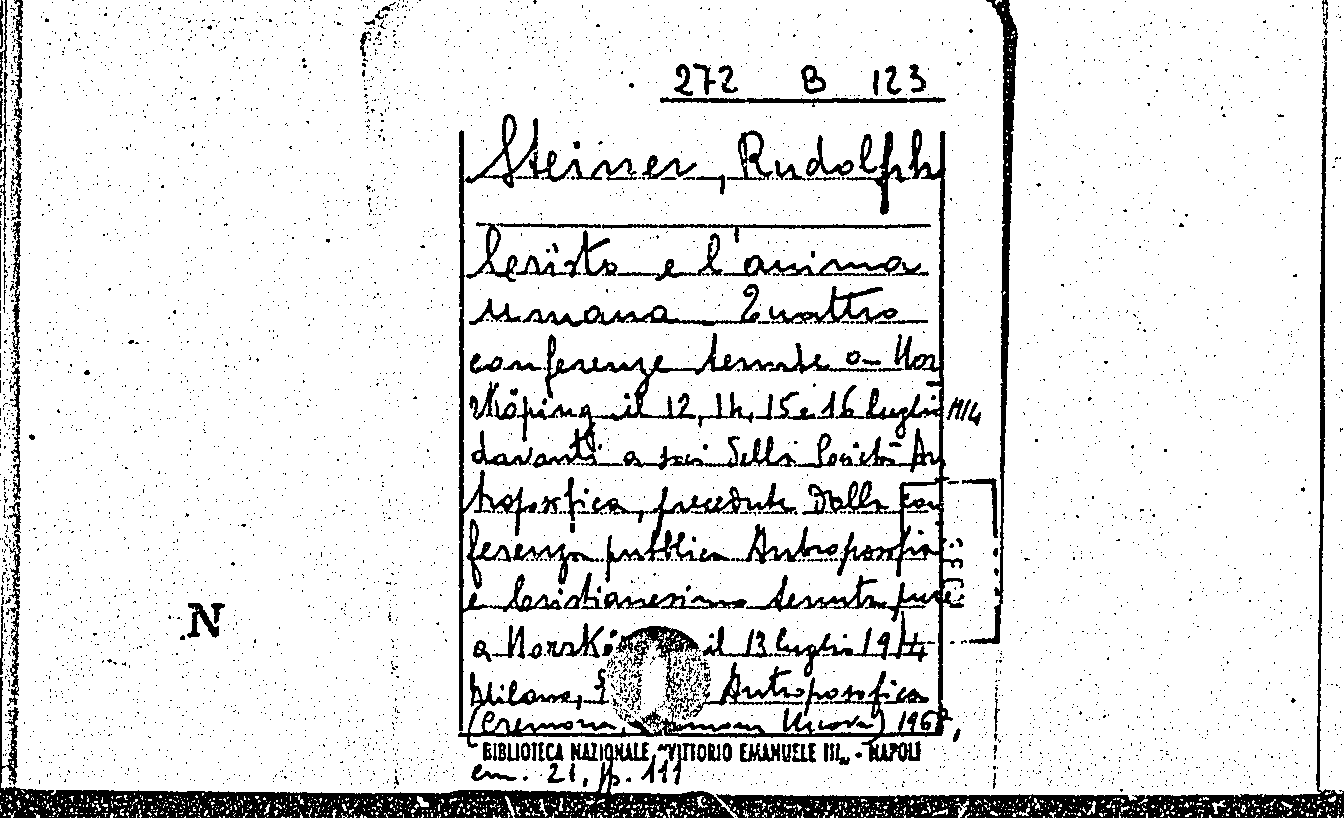 272 B 123
Steiner, Rudolph
Cristo e l'anima
umana. Quattro
conferenze tenute a Nor
rköping il 12, 14, 15 e 16 luglio 1914
davanti a soci della Società An
troposofica, precedute dalla con
ferenza pubblica Antroposofia
e Cristianesimo tenuta pure
a Norrkö il 13 luglio 1914
N
Milano, Antroposofica
(Cremona, Uicova) 1968,
BIBLIOTECA NAZIONALE "VITTORIO EMANUELE III" - NAPOLI
cm. 21, pp. 111